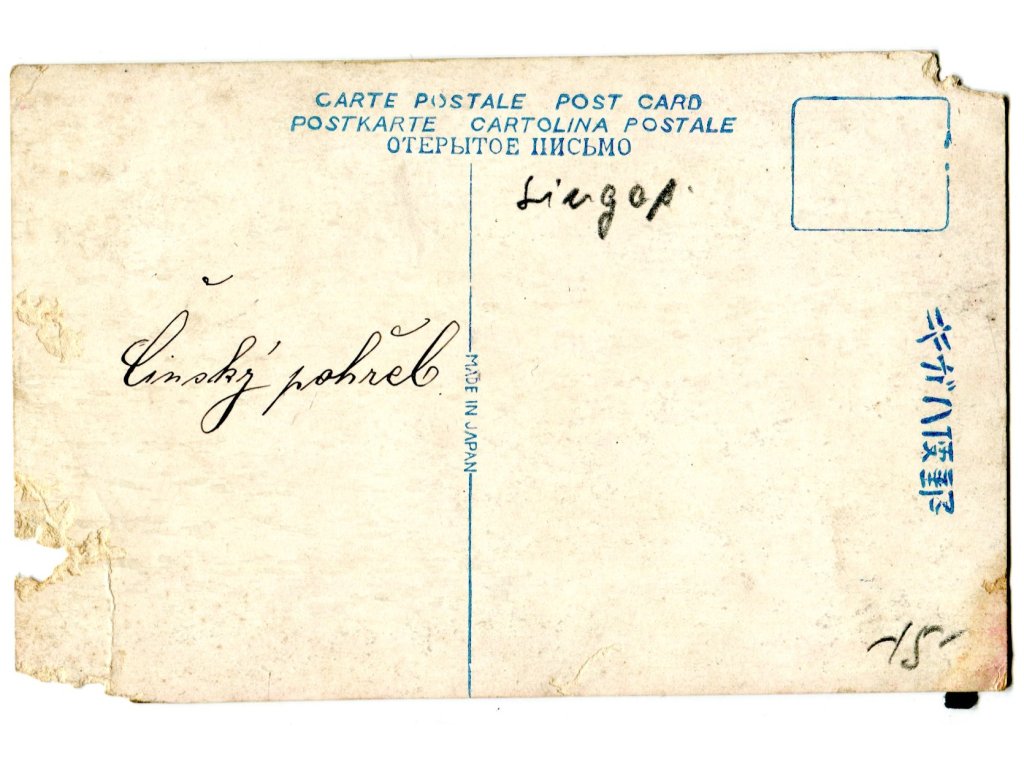 CARTE POSTALE POST CARD
POSTKARTE CARTOLINA POSTALE
ОТЕРЫТОЕ ПИСЬМО
Singap.
Činský pohřeb
MADE IN JAPAN
キガハ便郵
-15-